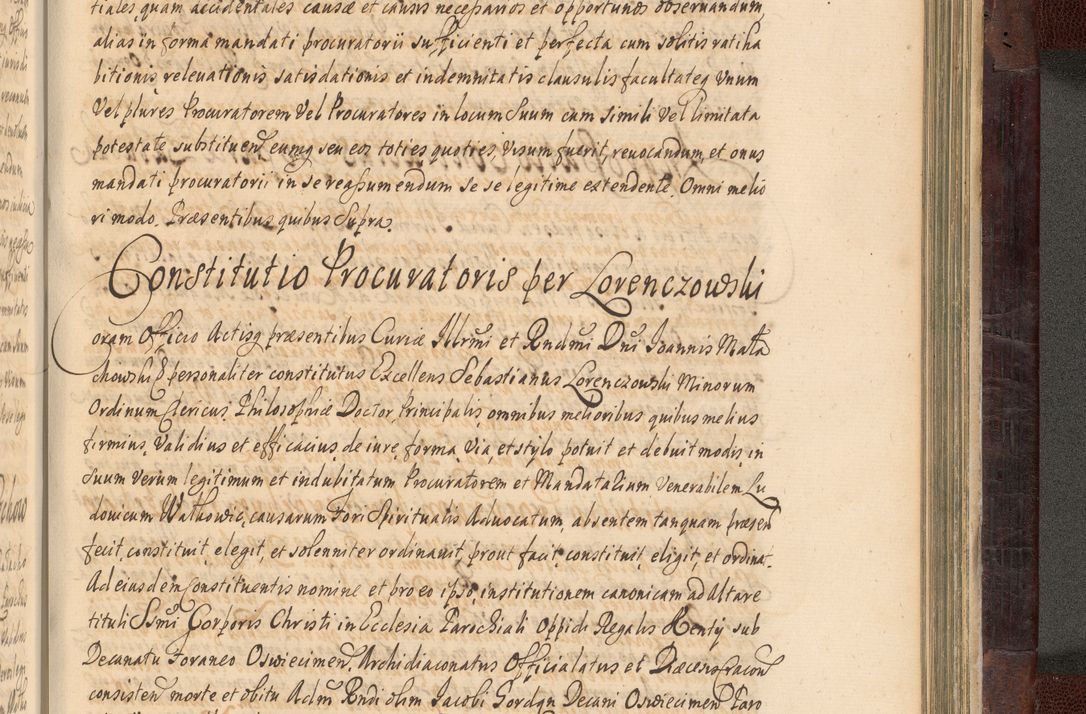 tiales quam accidentales causæ et causis necessarios et opportunos observandum
alias in forma mandati procuratorii sufficienti et perfecta cum solitis ratiha
bitionis relevationis satisdationis et indemnitatis clausulis facultateq Vnum
Vel plures Procuratorem Vel Procuratores in locum Suum cum simili Vel limitata
potestate substituen eumq seu eos toties quoties Visum fuerit, revocandum, et onus
mandati procuratorii in se reassumendum se se legitime extendente. Omni melio
ri modo. Præsentibus quibus Supra.
Constitutio Procuratoris per Lorenczowski
oram Officio Actisq præsentibus Curiæ Illrmi et Rndmi Dni Joannis Mała
chowski & personaliter constitutus Excellens Sebastianus Lorenczowski Minorum
Ordinum Clericus Philosophiæ Doctor Principalis, omnibus melioribus quibus melius
firmius, Validius et efficacius de iure, forma, Via, et stylo potuit et debuit modis, in
Suum Verum legitimum et indubitatum Procuratorem et Mandatarium Venerabilem Lu
dovicum Wałkowic, causarum Fori Spiritualis Advocatum, absentem tanquam præsen
fecit, constituit, elegit, et solenniter ordinavit, prout facit, constituit, eligit, et ordinat.
Ad eiusdem Constituentis nomine et pro eo ipso, institutionem canonicam ad Altare
tituli Ssmi Corporis Christi in Ecclesia Parochiali Oppidi Regalis Kenty sub
Decanatu Foraneo Oswiecimen, Archidiaconatus Officialatus et Diæcens Cracon
consisten morte et obitu Adm Rndi olim Jacobi Gordyn Decani Oswiecimen Paro